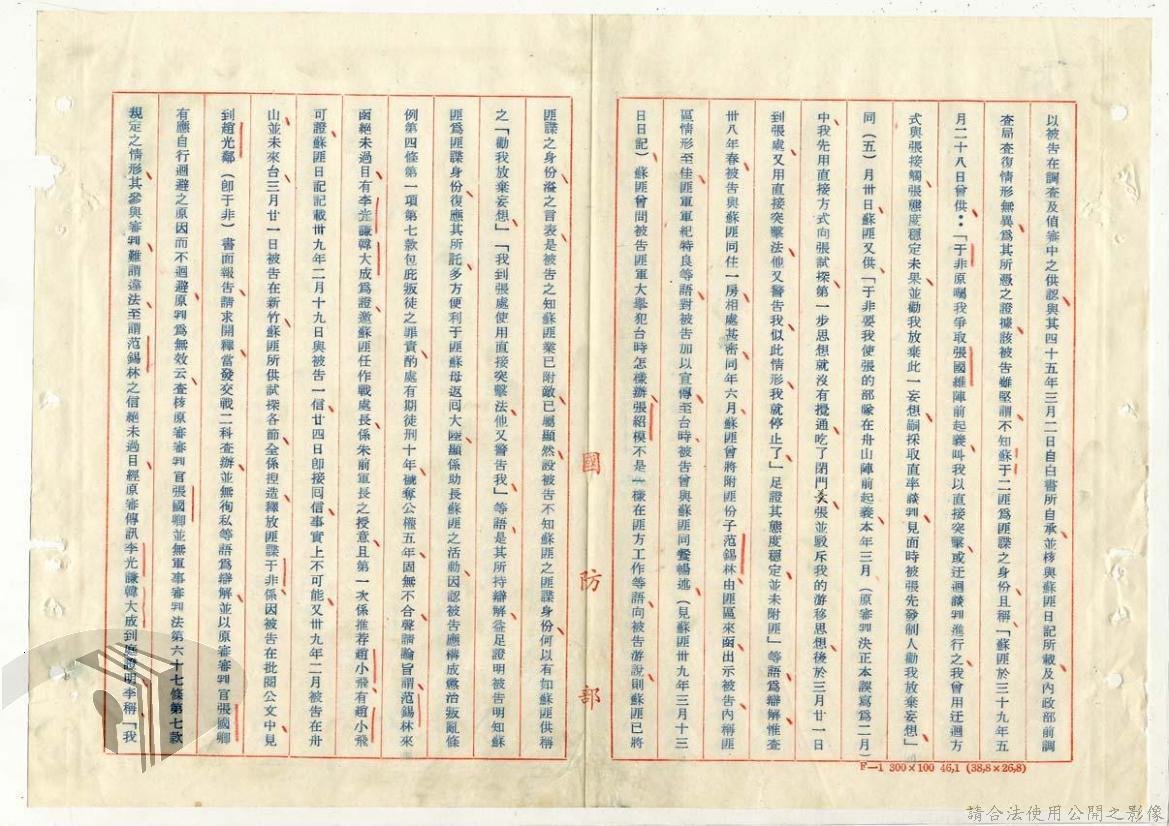 以被告在調查及偵審中之供認與其四十五年三月二日自白書所自承並核與蘇匪日記所載及內政部前調
查局查復情形無異爲其所憑之證據該被告雖堅謂不知蘇于二匪爲匪諜之身份且稱「蘇匪於三十九年五
月二十八日曾供：「于非原囑我爭取張國維陣前起義叫我以直接突擊或迂迴談判進行之我曾用迂迴方
式與張接觸張態度穩定未果並勸我放棄此一妄想嗣採取直率談判見面時被張先發制人勸我放棄妄想」
同（五）月卅日蘇匪又供「于非要我使張的部隊在舟山陣前起義本年三月（原審判決正本誤寫爲二月）
中我先用直接方式向張試探第一步思想就沒有攪通吃了閉門羹張並駁斥我的游移思想後於三月廿一日
到張處又用直接突擊法他又警告我似此情形我就停止了」足證其態度穩定並未附匪」等語爲辯解惟查
卅八年春被告與蘇匪同住一房相處甚密同年六月蘇匪曾將附匪份子范錫林由匪區來函出示被告內稱匪
區情形至佳匪軍軍紀特良等語對被告加以宣傳至台時被告曾與蘇匪同餐暢述（見蘇匪卅九年三月十三
日日記）蘇匪曾問被告匪軍大舉犯台時怎樣辦張紹模不是一樣在匪方工作等語向被告游說則蘇匪已將
國防部
匪諜之身份溢之言表是被告之知蘇匪業已附敵已屬顯然設被告不知蘇匪之匪諜身份何以有如蘇匪供稱
之「勸我放棄妄想」「我到張處使用直接突擊法他又警告我」等語是其所持辯解益足證明被告明知蘇
匪爲匪諜身份復應其所託多方便利于匪蘇母返囘大陸顯係助長蘇匪之活動因認被告應構成懲治叛亂條
例第四條第一項第七款包庇叛徒之罪責酌處有期徒刑十年褫奪公權五年固無不合聲請論旨謂范錫林來
函絕未過目有李光謙韓大成爲證邀蘇匪任作戰處長係朱前軍長之授意且第一次係推荐趙小飛有趙小飛
可證蘇匪日記記載卅九年二月十九日與被告一信廿四日卽接囘信事實上不可能又卅九年二月被告在舟
山並未來台三月廿一日被告在新竹蘇匪所供試探各節全係捏造釋放匪諜于非係因被告在批閱公文中見
到趙光鄰（卽于非）書面報告請求開釋當發交戰二科查辦並無徇私等語爲辯解並以原審審判官張國卿
有應自行迴避之原因而不迴避原判爲無效云查核原審審判官張國卿並無軍事審判法第六十七條第七款
規定之情形其參與審判難謂違法至謂范錫林之信絕未過目經原審傳訊李光謙韓大成到庭證明李稱「我
F—1 300×100 46,1 (38,8×26,8)
請合法使用公開之影像